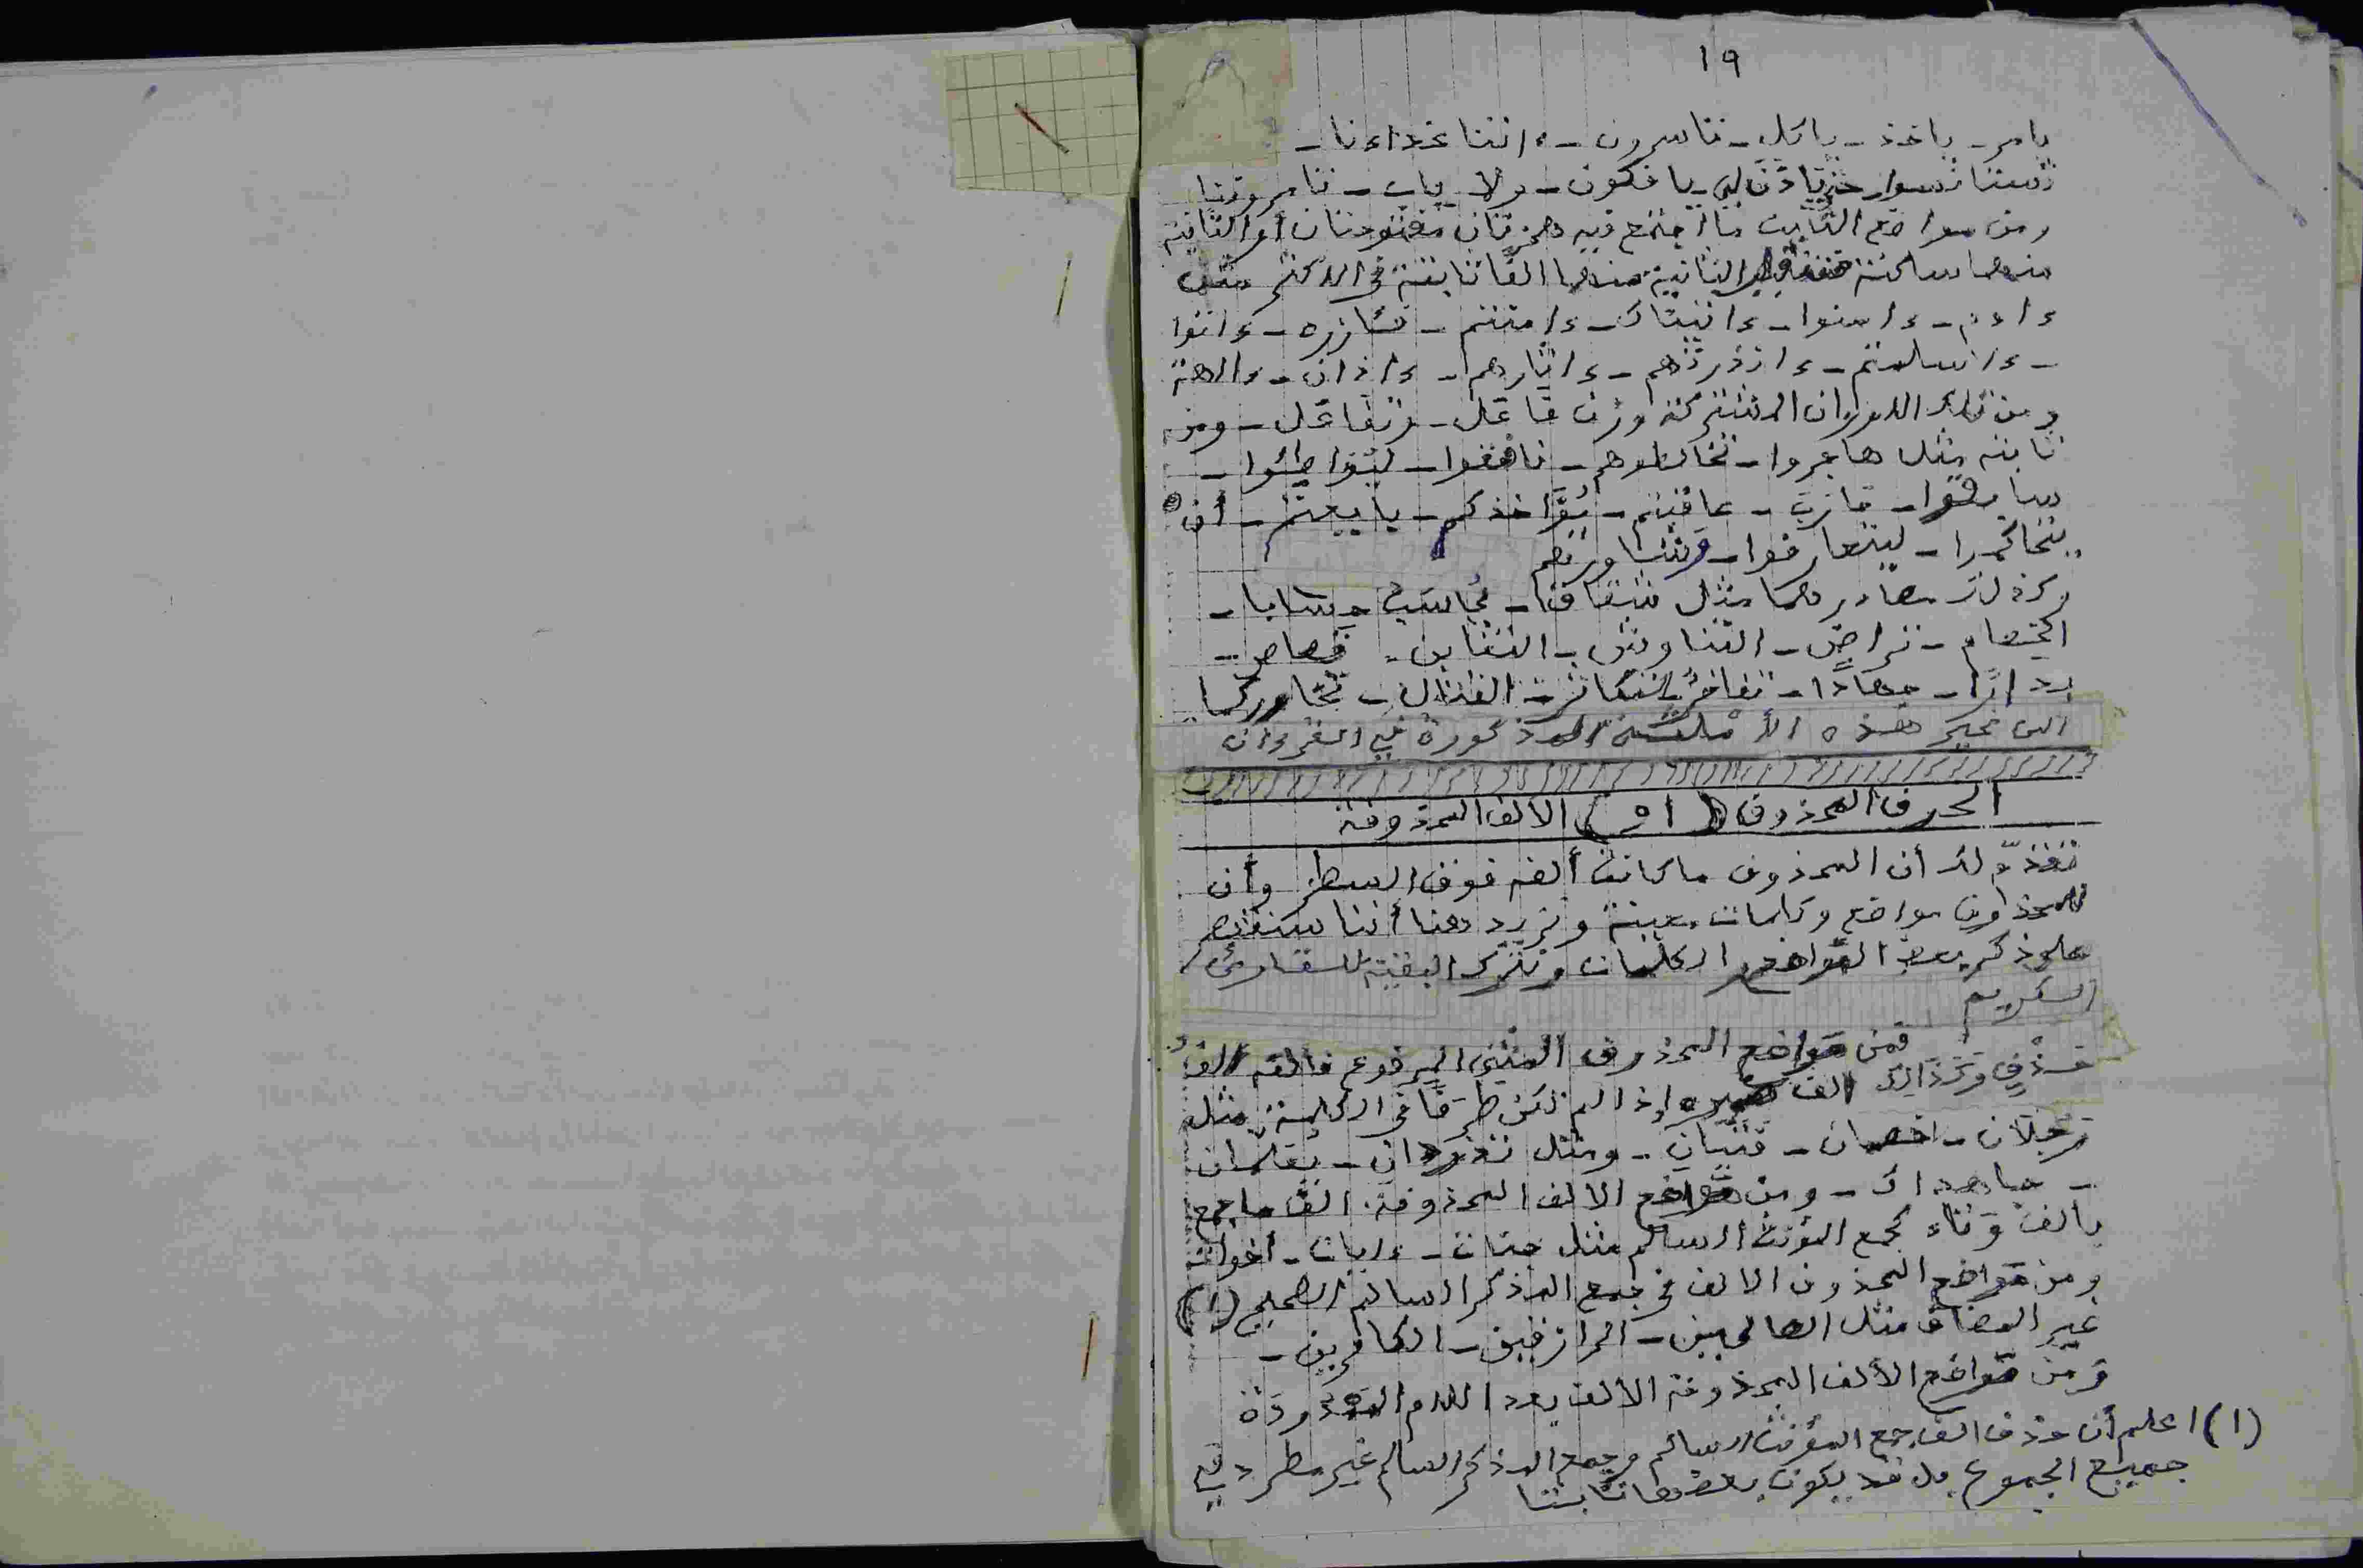 ١٩
يامر - ياخذ - ياكل - تاسرون - ءاتنا غداءنا -
يافكون - ولا ياب - تامرونا
ومن مواضع الثابت ما اجتمع فيه همزتان مفتوحتان أو الثانية
منهما ساكنة الثانية منهما الفا ثابتة في الاكثر مثل
ءادم - ءامنوا - ءاتيناك - ءامنتم - فئازره - ءاتوا
- ءاسلمتم - ءانذرتهم - ءاثارهم - ءاذان - ءالهة
ومن تلك الاوزان المشتركة وزن فاعل - وتفاعل - ومن
ثابته مثل هاجروا - تخالطوهم - نافقوا - ليواطئوا -
سابقوا - قاربت - عاقبتم - يؤاخذكم - بايعتم - أن
يتحاكموا - ليتعارفوا - وتشاورتهم
وكذلك مصادرهما مثل شقاق - نحاسب حسابا -
الخصام - تراض - التناوش - التغابن - قصاص -
جهادا - تفاخر - التكاثر - القتال - تحاوركما
الى غير هذه الأمثلة المذكورة في القرءان
الحرف المحذوف (او) الالف المحذوفة
تقدّم لك أن المحذوف ما كانت ألفه فوق السطر وأن
للمحذوف مواضع وكلمات معينة ونريد هنا أننا سنقتصر
على ذكر بعض المواضع والكلمات ونترك البقية للقارئ
الكريم
فمن مواضع المحذوف المثنى المرفوع فألفه الفُ
حذفٍ وكذالك الف ضميره اذا لم تكن طرفًا في الكلمة مثل
رجلان - خصمان - فتيان - ومثل تذودان - يعلّمان
- جاهداك - ومن مواضع الالف المحذوفة الف ما جمع
بالف وتاء كجمع المؤنث السالم مثل جنات - ءايات - أخوات
ومن مواضع المحذوف الالف في جمع المذكر السالم الصحيح (١)
غير المضاف مثل الصالحين - الرازقين - الكافرين -
ومن مواضع الألف المحذوفة الالف بعد اللام
(١) اعلم أن حذف الف جمع المؤنث السالم وجمع المذكر السالم غير مطرد في
جميع الجموع بل قد يكون بعضها ثابتا